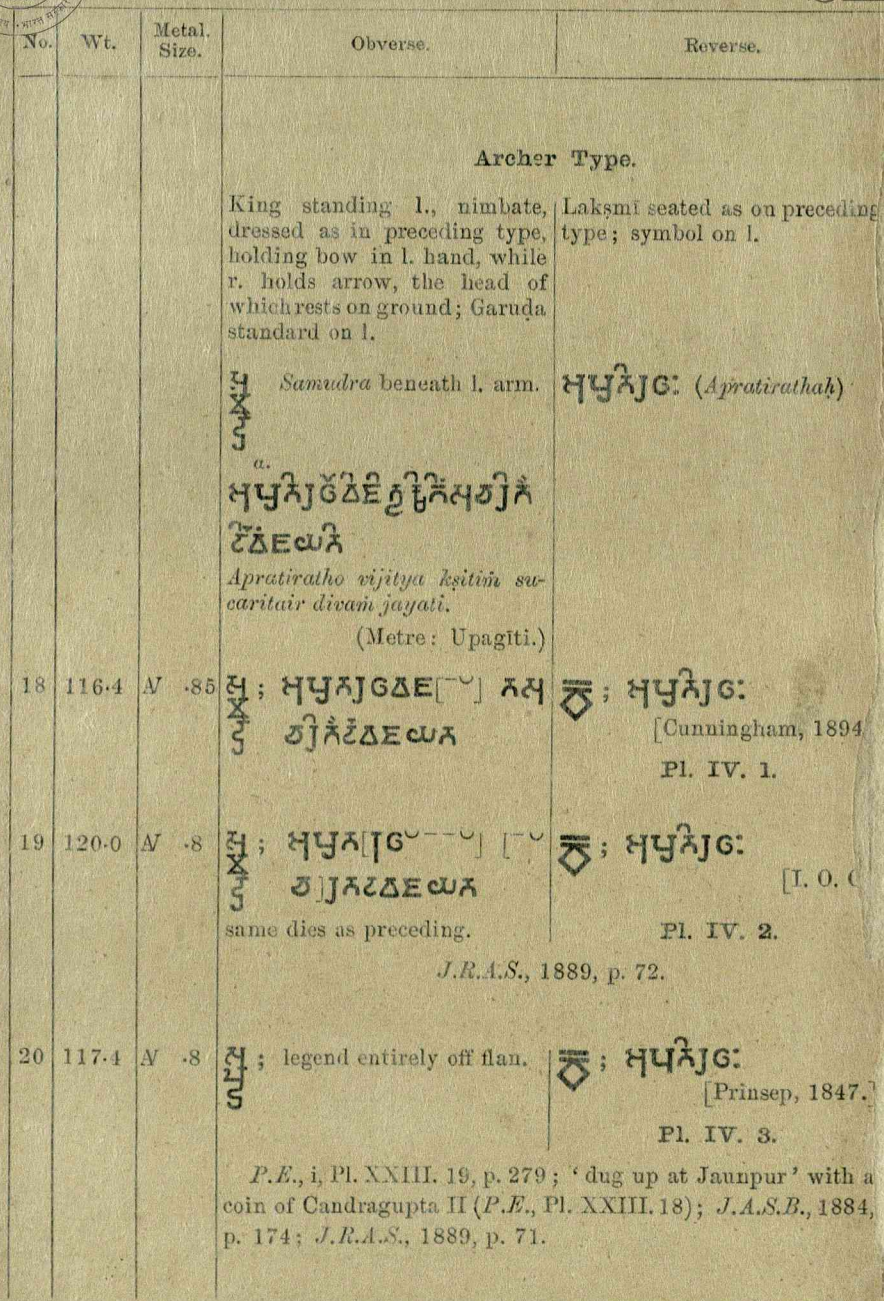 No. Wt. Metal. Size. Obverse. Reverse.
Archer Type.
King standing l., nimbate,
dressed as in preceding type,
holding bow in l. hand, while
r. holds arrow, the head of
which rests on ground; Garuḍa
standard on l.
Lakṣmī seated as on preceding
type; symbol on l.
Samudra beneath l. arm.
(Apratirathaḥ)
a.
Apratiratho vijitya kṣitiṁ su-
caritair divaṁ jayati.
(Metre: Upagīti.)
18 116·4 AV ·85
[Cunningham, 1894
Pl. IV. 1.
19 120·0 AV ·8
same dies as preceding.
[I. O. C
Pl. IV. 2.
J.R.A.S., 1889, p. 72.
20 117·4 AV ·8 ; legend entirely off flan.
[Prinsep, 1847.]
Pl. IV. 3.
P.E., i, Pl. XXIII. 19, p. 279; ‘dug up at Jaunpur’ with a
coin of Candragupta II (P.E., Pl. XXIII. 18); J.A.S.B., 1884,
p. 174; J.R.A.S., 1889, p. 71.